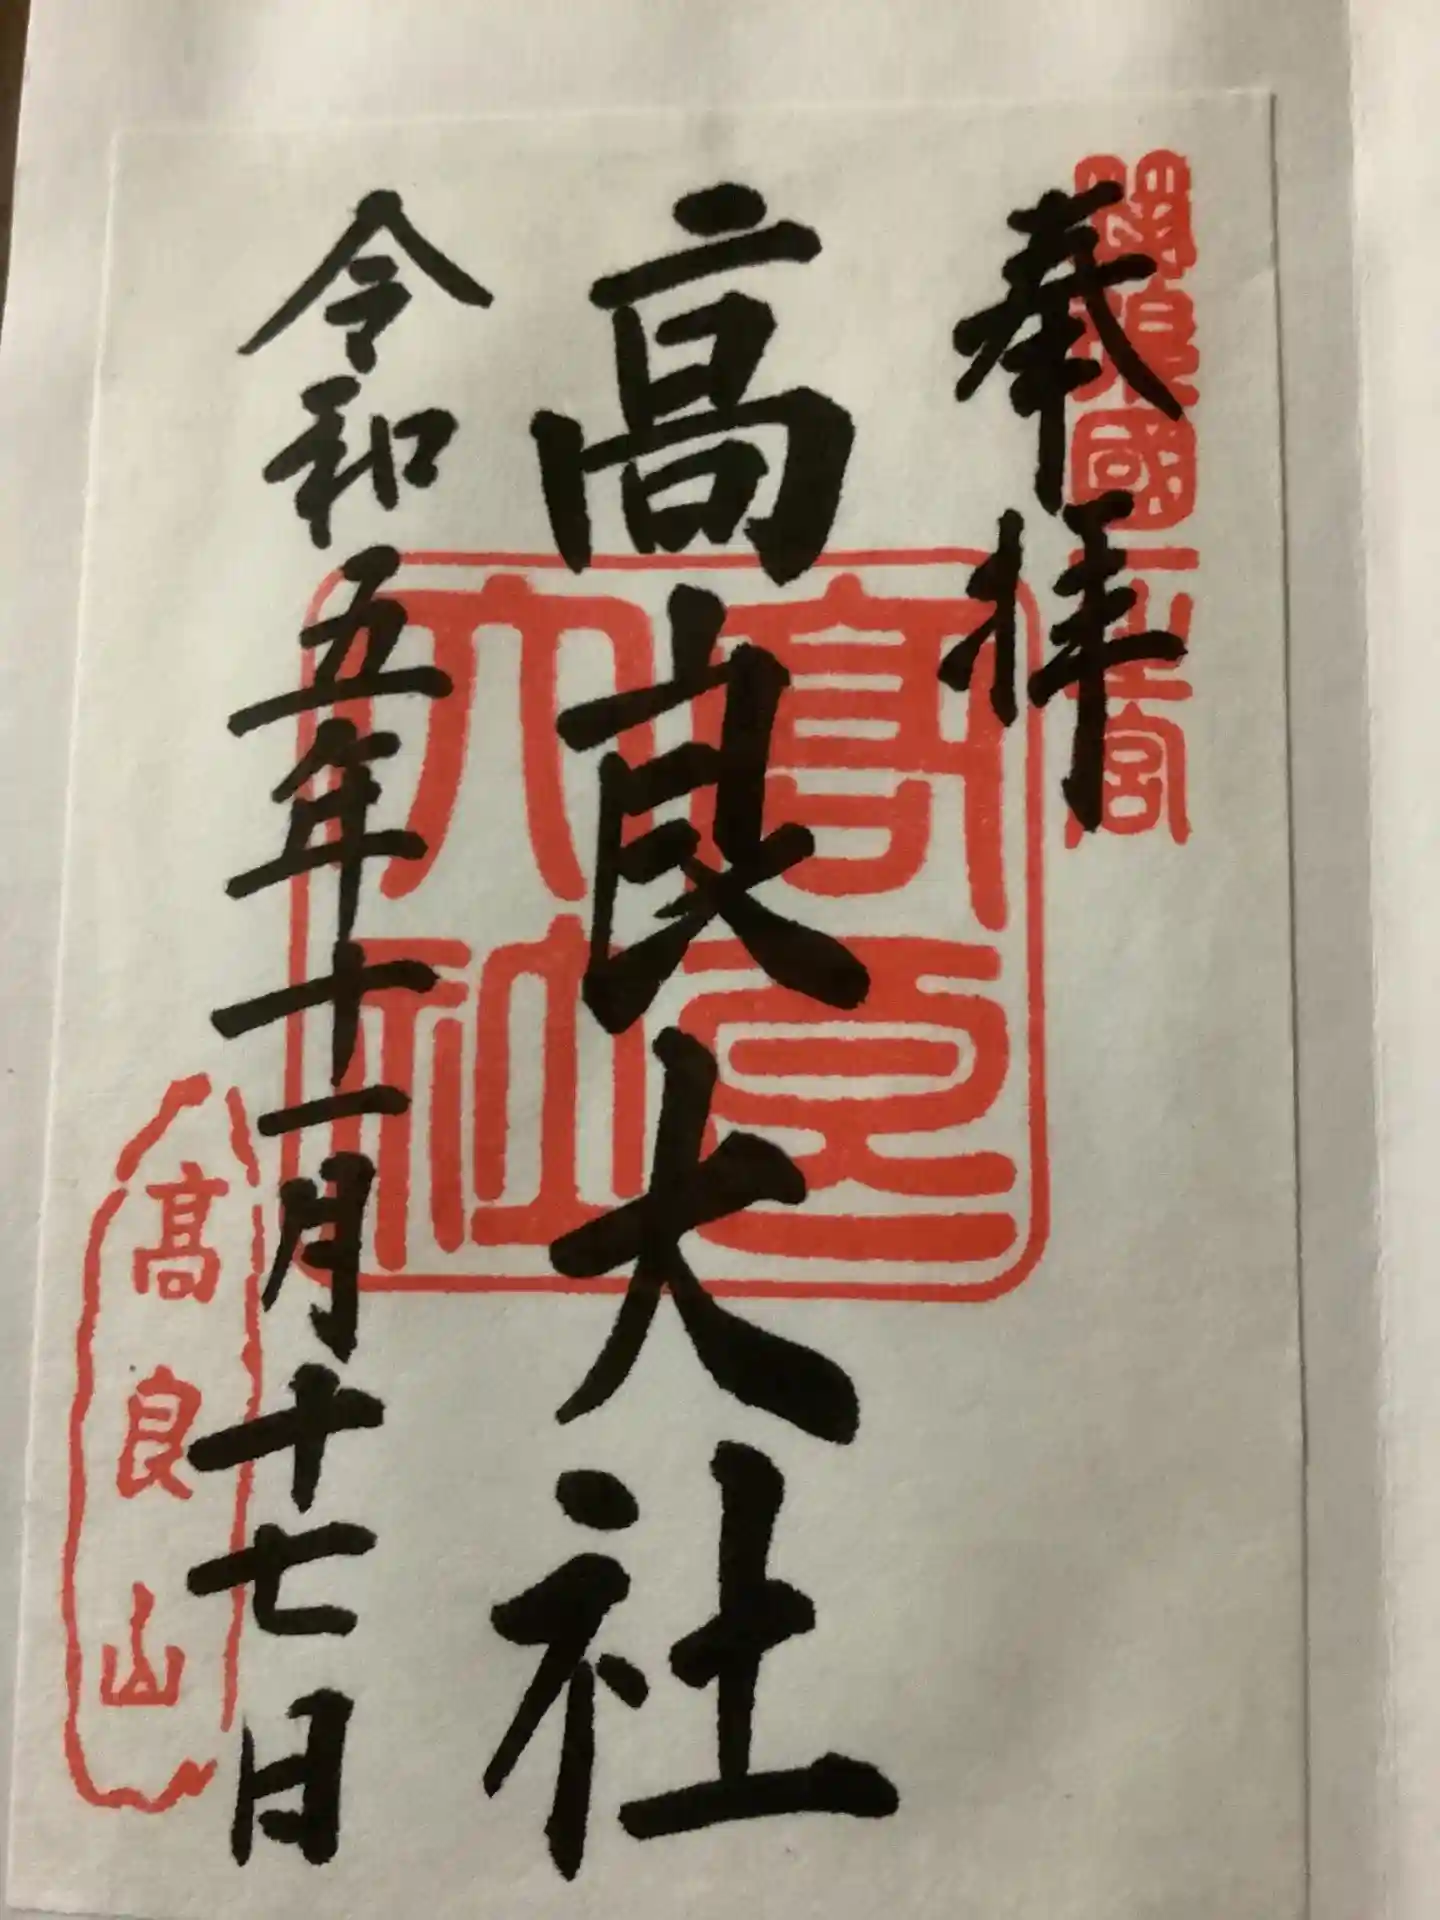 奉拝
筑後國一之宮
髙良大社
髙良大社
令和五年十一月十七日
髙良山